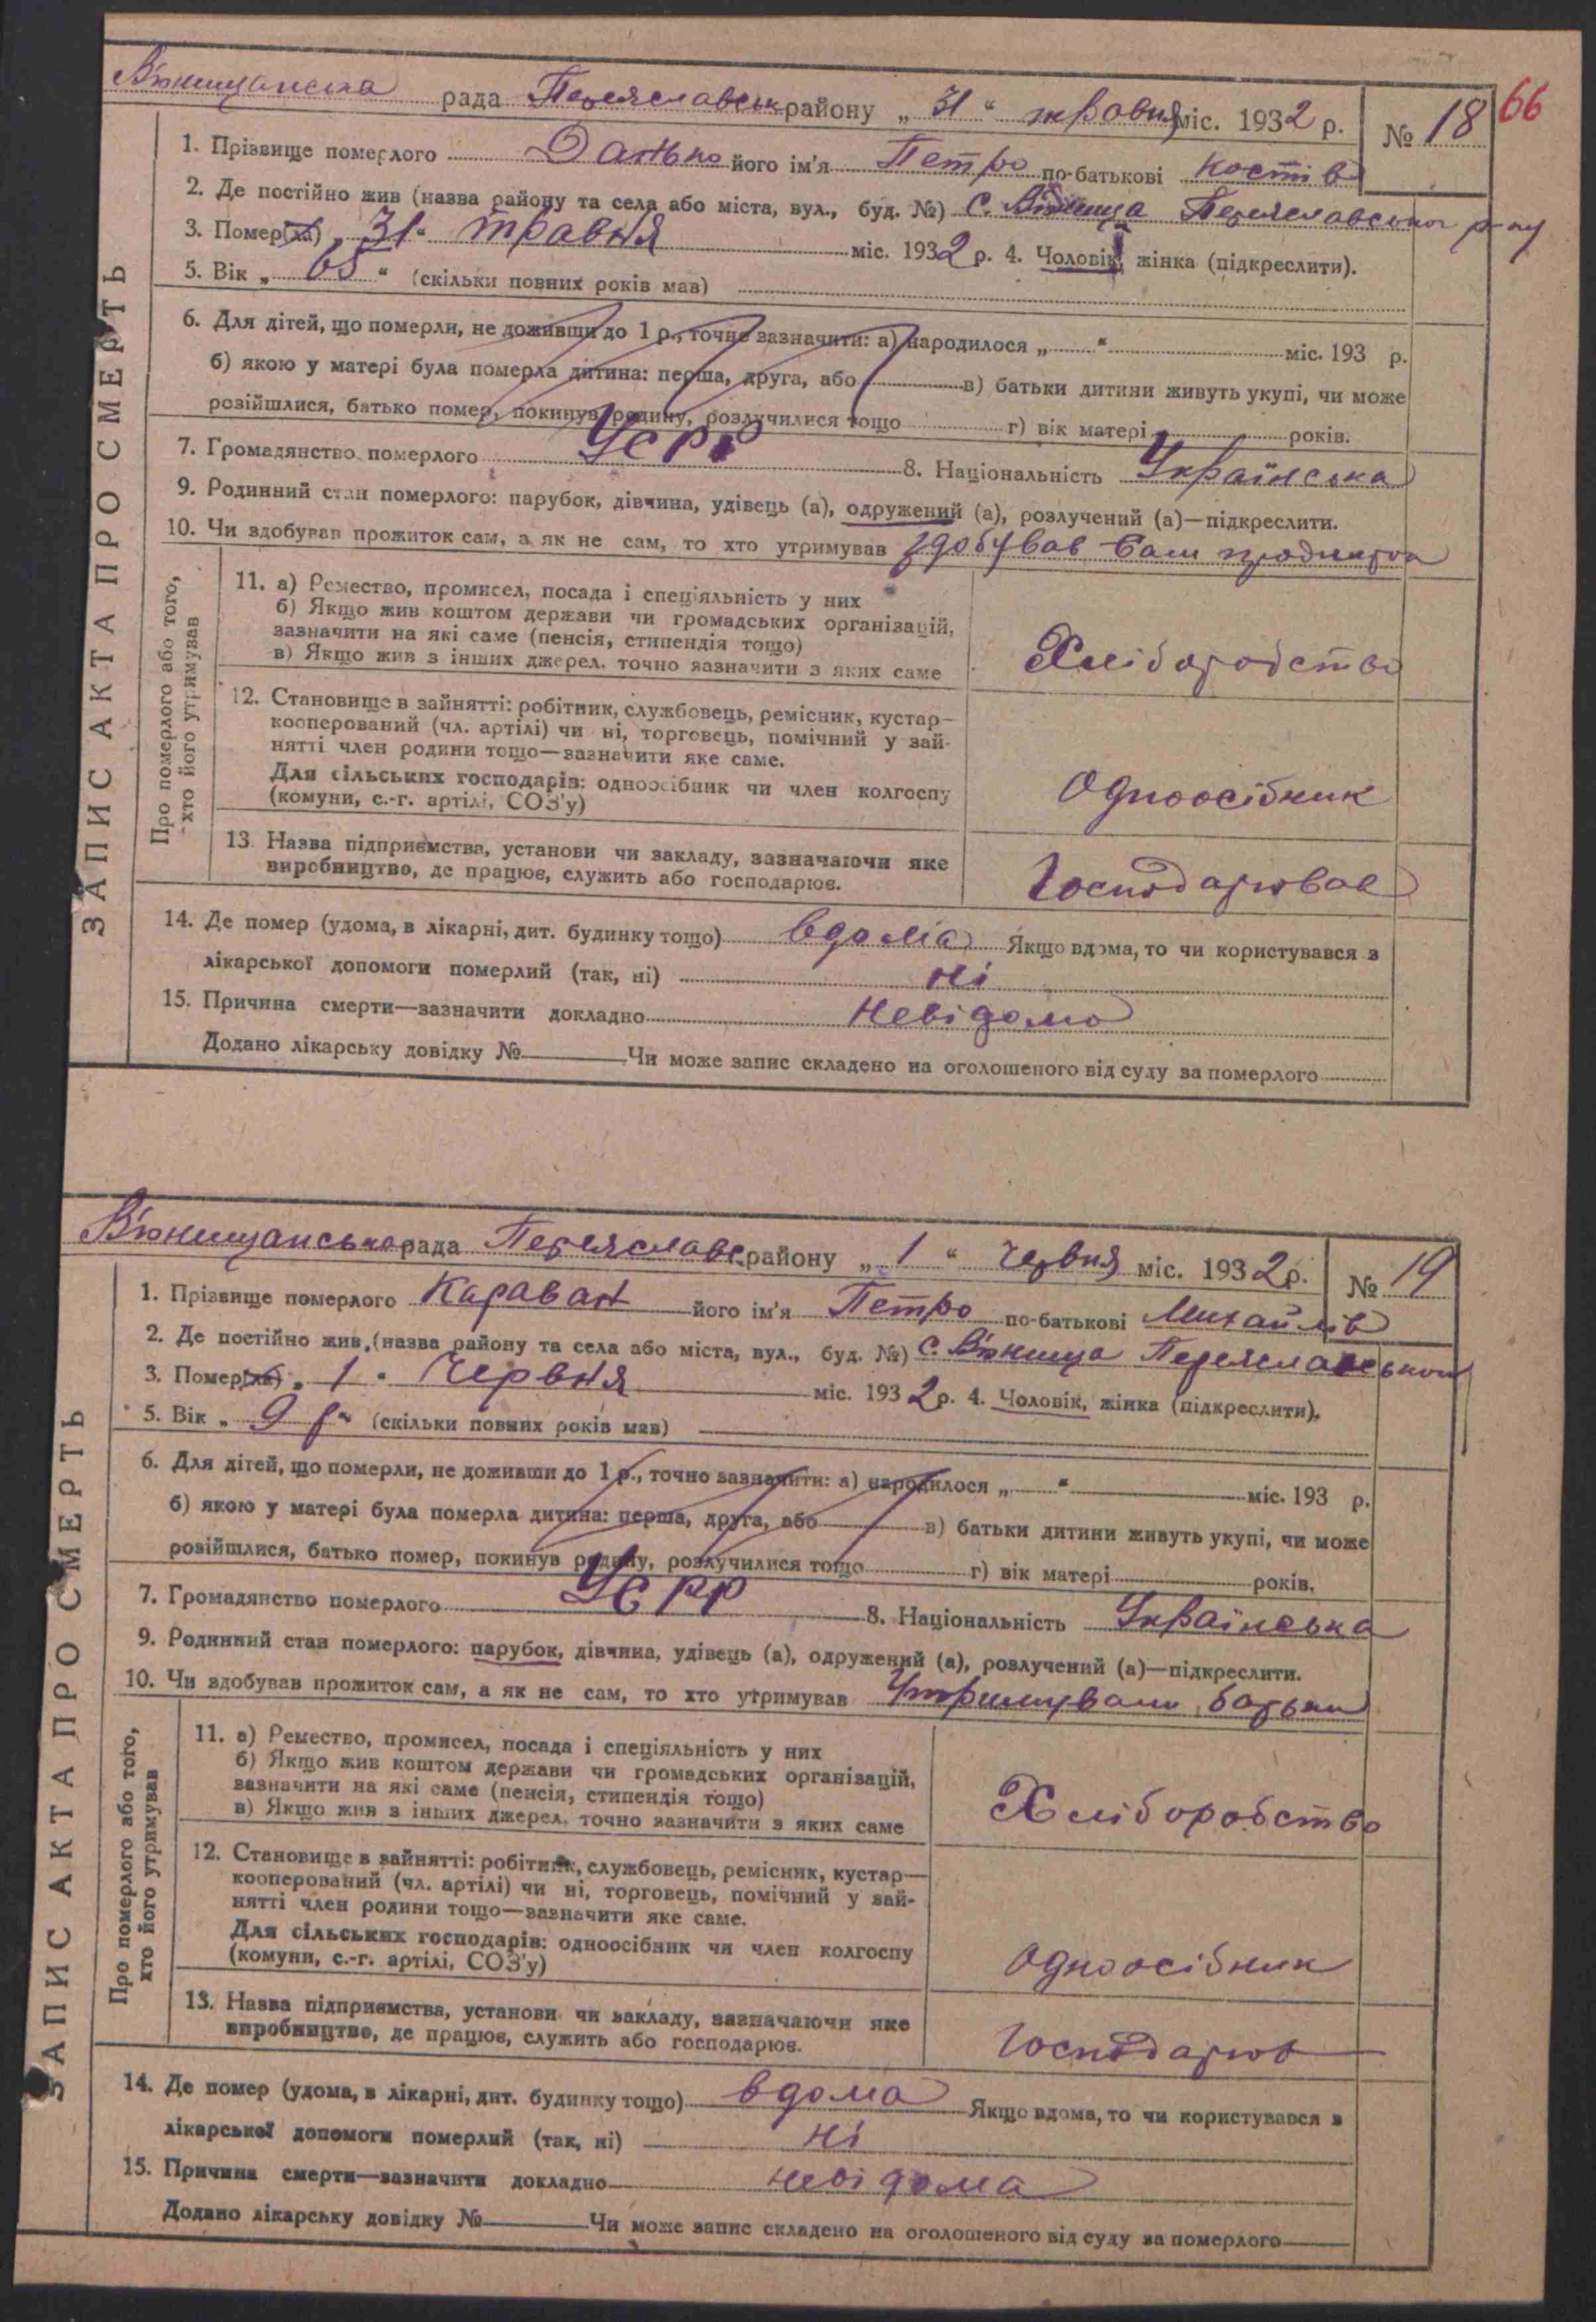 В'юнищанська рада Переяславськ району „ 31 “ травня міс. 1932 р. № 18 66
1. Прізвище померлого Данько його ім'я Петро по-батькові Костів
2. Де постійно жив (назва району та села або міста, вул., буд. №) с. В'юнища Переяславського р-ну
3. Помер(ла) „ 31 “ травня міс. 1932 р. 4. Чоловік, жінка (підкреслити).
5. Вік „ 65 “ (скільки повних років мав)
6. Для дітей, що померли, не доживши до 1 р., точно зазначити: а) народилося „ “ міс. 193 р.
б) якою у матері була померла дитина: перша, друга, або в) батьки дитини живуть укупі, чи може
розійшлися, батько помер, покинув родину, розлучилися тощо г) вік матері років.
7. Громадянство померлого УСРР 8. Національність Українська
9. Родинний стан померлого: парубок, дівчина, удівець (а), одружений (а), розлучений (а)—підкреслити.
10. Чи здобував прожиток сам, а як не сам, то хто утримував здобував сам
ЗАПИС АКТА ПРО СМЕРТЬ
Про померлого або того,
хто його утримував
11. а) Ремество, промисел, посада і спеціяльність у них
б) Якщо жив коштом держави чи громадських організацій,
зазначити на які саме (пенсія, стипендія тощо)
в) Якщо жив з інших джерел, точно зазначити з яких саме
Хліборобство
12. Становище в зайнятті: робітник, службовець, ремісник, кустар—
кооперований (чл. артілі) чи ні, торговець, помічний у зай-
нятті член родини тощо—зазначити яке саме.
Для сільських господарів: одноосібник чи член колгоспу
(комуни, с.-г. артілі, СОЗ'у)
Одноосібник
13. Назва підприємства, установи чи закладу, зазначаючи яке
виробництво, де працює, служить або господарює.
Господарював
14. Де помер (удома, в лікарні, дит. будинку тощо) вдома Якщо вдома, то чи користувався з
лікарської допомоги померлий (так, ні) ні
15. Причина смерти—зазначити докладно невідома
Додано лікарську довідку № Чи може запис складено на оголошеного від суду за померлого
В'юнищанська рада Переяславс. району „ 1 “ червня міс. 1932 р. № 19
1. Прізвище померлого Караван його ім'я Петро по-батькові Михайлів
2. Де постійно жив, (назва району та села або міста, вул., буд. №) с. В'юнища Переяславського
3. Помер(ла) „ 1 “ Червня міс. 1932 р. 4. Чоловік, жінка (підкреслити).
5. Вік „ 9 р “ (скільки повних років мав)
6. Для дітей, що померли, не доживши до 1 р., точно зазначити: а) народилося „ “ міс. 193 р.
б) якою у матері була померла дитина: перша, друга, або в) батьки дитини живуть укупі, чи може
розійшлися, батько помер, покинув родину, розлучилися тощо г) вік матері років.
7. Громадянство померлого УСРР 8. Національність Українська
9. Родинний стан померлого: парубок, дівчина, удівець (а), одружений (а), розлучений (а)—підкреслити.
10. Чи здобував прожиток сам, а як не сам, то хто утримував Утримували батьки
ЗАПИС АКТА ПРО СМЕРТЬ
Про померлого або того,
хто його утримував
11. а) Ремество, промисел, посада і спеціяльність у них
б) Якщо жив коштом держави чи громадських організацій,
зазначити на які саме (пенсія, стипендія тощо)
в) Якщо жив з інших джерел, точно зазначити з яких саме
Хліборобство
12. Становище в зайнятті: робітник, службовець, ремісник, кустар—
кооперований (чл. артілі) чи ні, торговець, помічний у зай-
нятті член родини тощо—зазначити яке саме.
Для сільських господарів: одноосібник чи член колгоспу
(комуни, с.-г. артілі, СОЗ'у)
Одноосібник
13. Назва підприємства, установи чи закладу, зазначаючи яке
виробництво, де працює, служить або господарює.
Господарюв
14. Де помер (удома, в лікарні, дит. будинку тощо) вдома Якщо вдома, то чи користувався з
лікарської допомоги померлий (так, ні) ні
15. Причина смерти—зазначити докладно невідома
Додано лікарську довідку № Чи може запис складено на оголошеного від суду за померлого